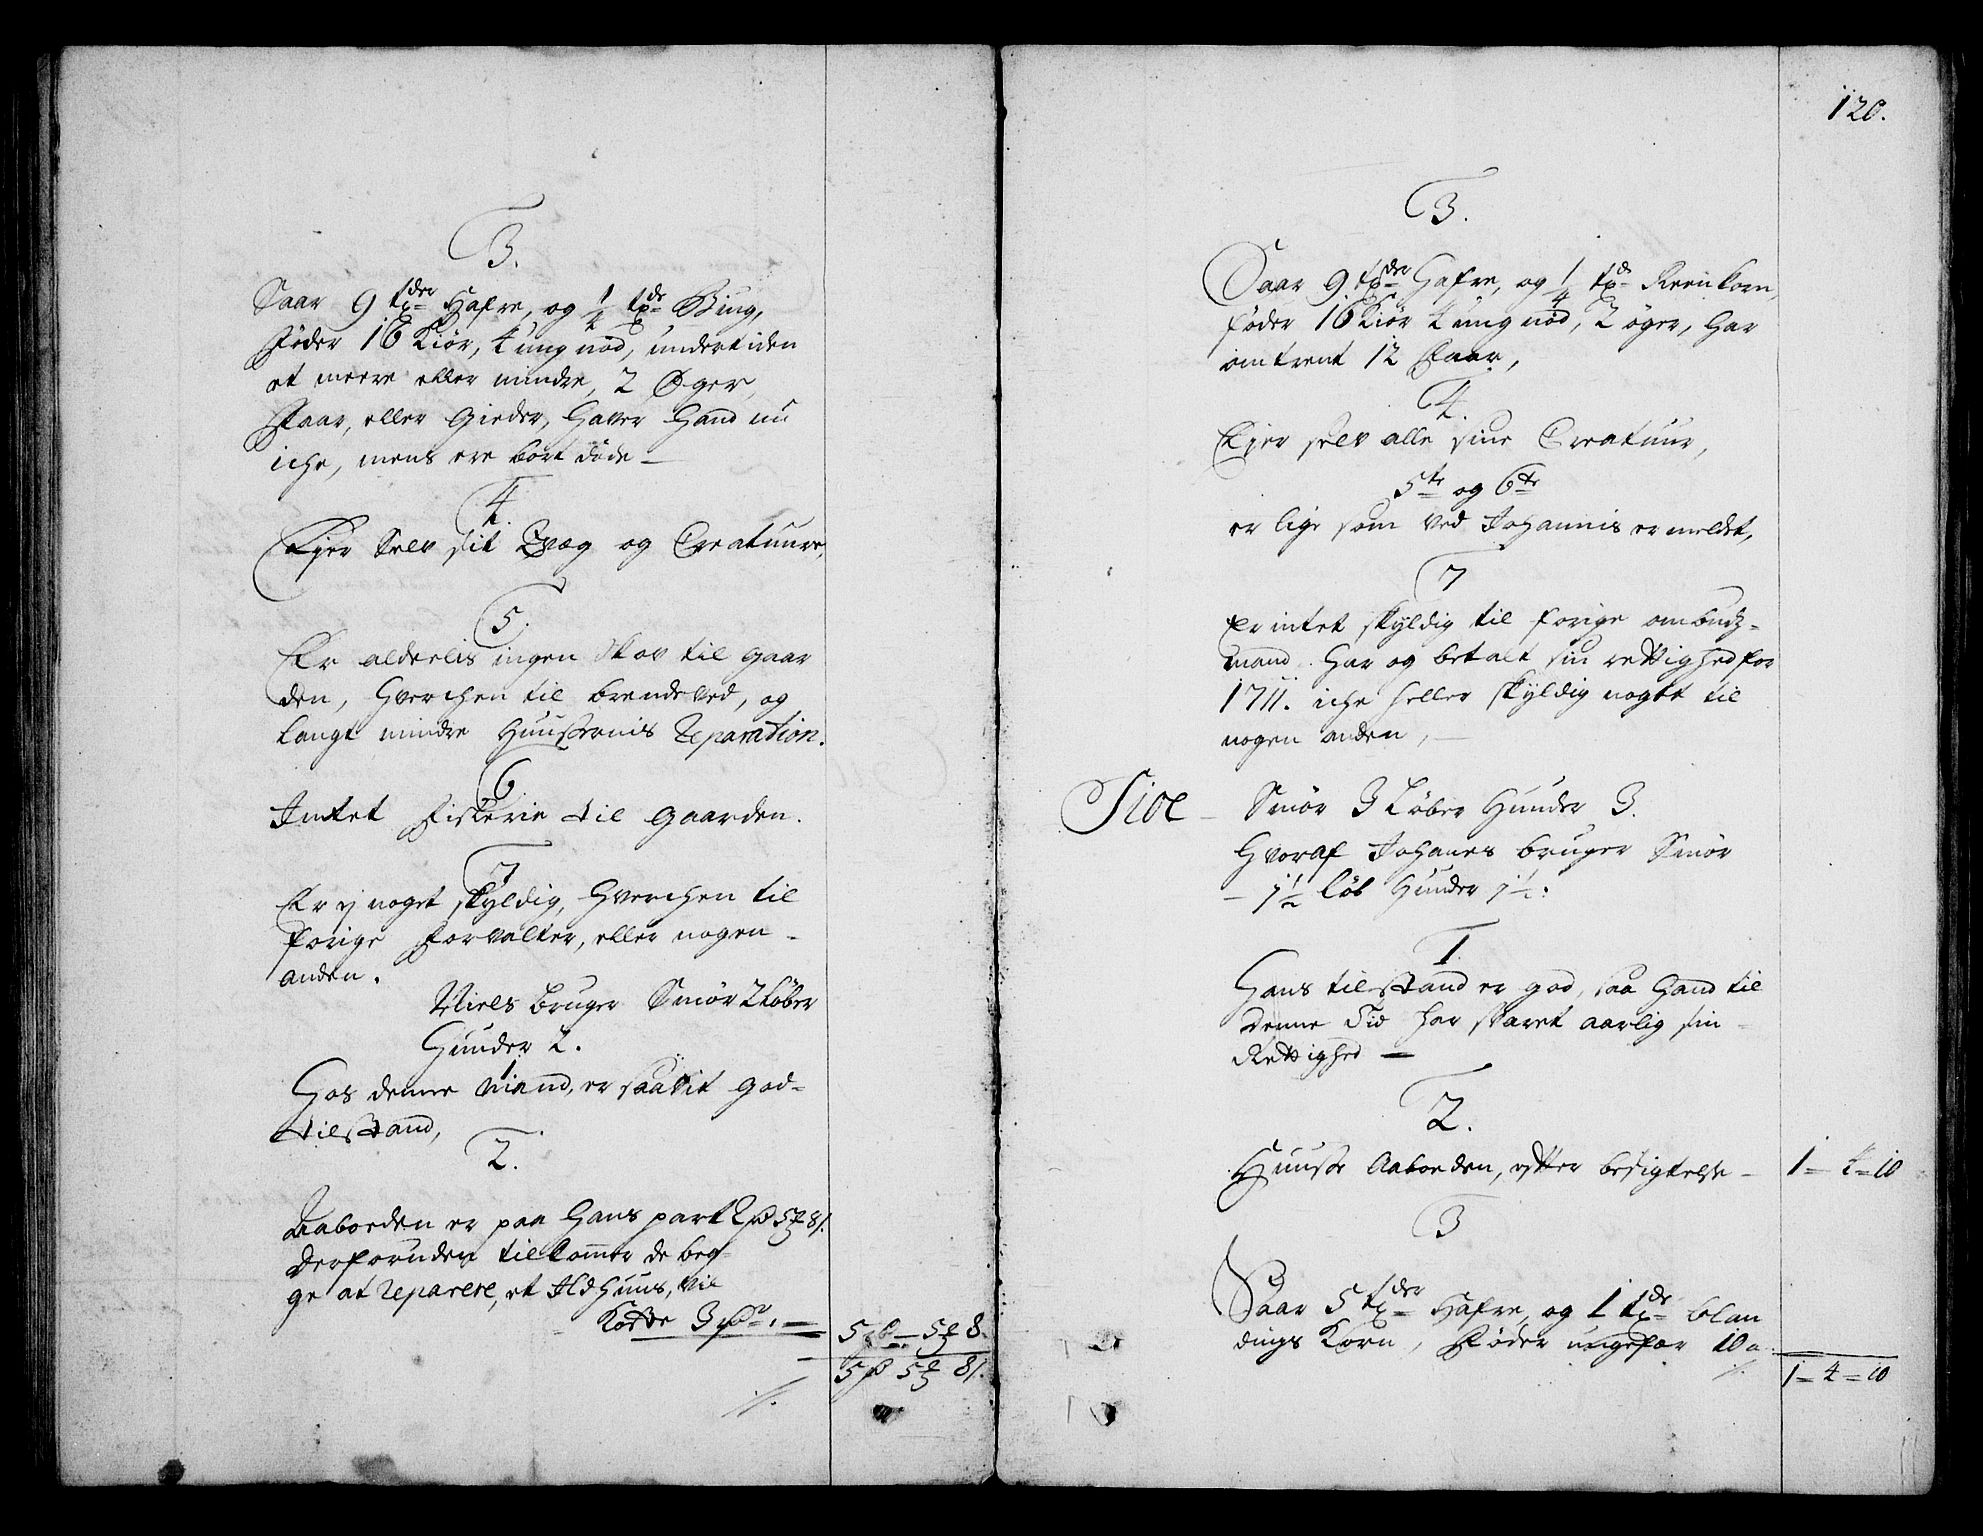 3.
Saar 9 tdr Hafre, og 1/4 tde Biug,
føder 16 Kiør, 4 ung nød, undertiden
et meere eller mindre, 2 Øger,
Faar, eller Gieder, haver hand nu
iche, mens ere bort døde —
4.
Ejer Selv sit Qvæg og Creatuure,
5.
Er alderlis ingen skov til gaar
den, hverchen til brendeved, og
langt mindre Huusernis Reparation.
6
Intet Fiskerie til gaarden.
7
Er ej noget skyldig, hverchen til
forige Forvalter, eller nogen
anden.
Niels bruger Smör 2 Løber
Hunder 2.
1
Hos denne Mand, er saavit god-
tilstand,
2.
Aaboeden er paa hans part 2 rd 5 ȝ 8 s.
Derforuden tilkommer de beg-
ge at reparere, et Ildhuus, vil
Koste 3 rdr. —
5 rd — 5 ȝ 8.
5 rd 5 ȝ 8 s.
120.
3.
Saar 9 tdr Hafre, og 1/4 td Reenkorn,
føder 16 Kiør 4 ung nød, 2 øger, har
omtrent 12 Faar,
4.
Ejer selv alle sine Creatuur,
5te og 6te
er lige som ved Johannis er meldet,
7
Er intet skyldig til forige ombudz-
mand. har og betalt sin rettighed for
1711. iche heller skyldig noget til
nogen anden, —
Sioe — Smör 3 Løber Hunder 3.
hvoraf Johanes bruger Smör
— 1 1/2 løb Hunder 1 1/2:
1.
Hans tilstand er god, saa hand til
denne Tid har svaret aarlig sin
Rettighed —
2.
Huuse Aaboeden, efter besigtelse — 1 = 4 = 10
3
Saar 5 tdr Hafre, og 1 tde blan
dings Korn, føder ungefær 10 a
1 = 4 = 10